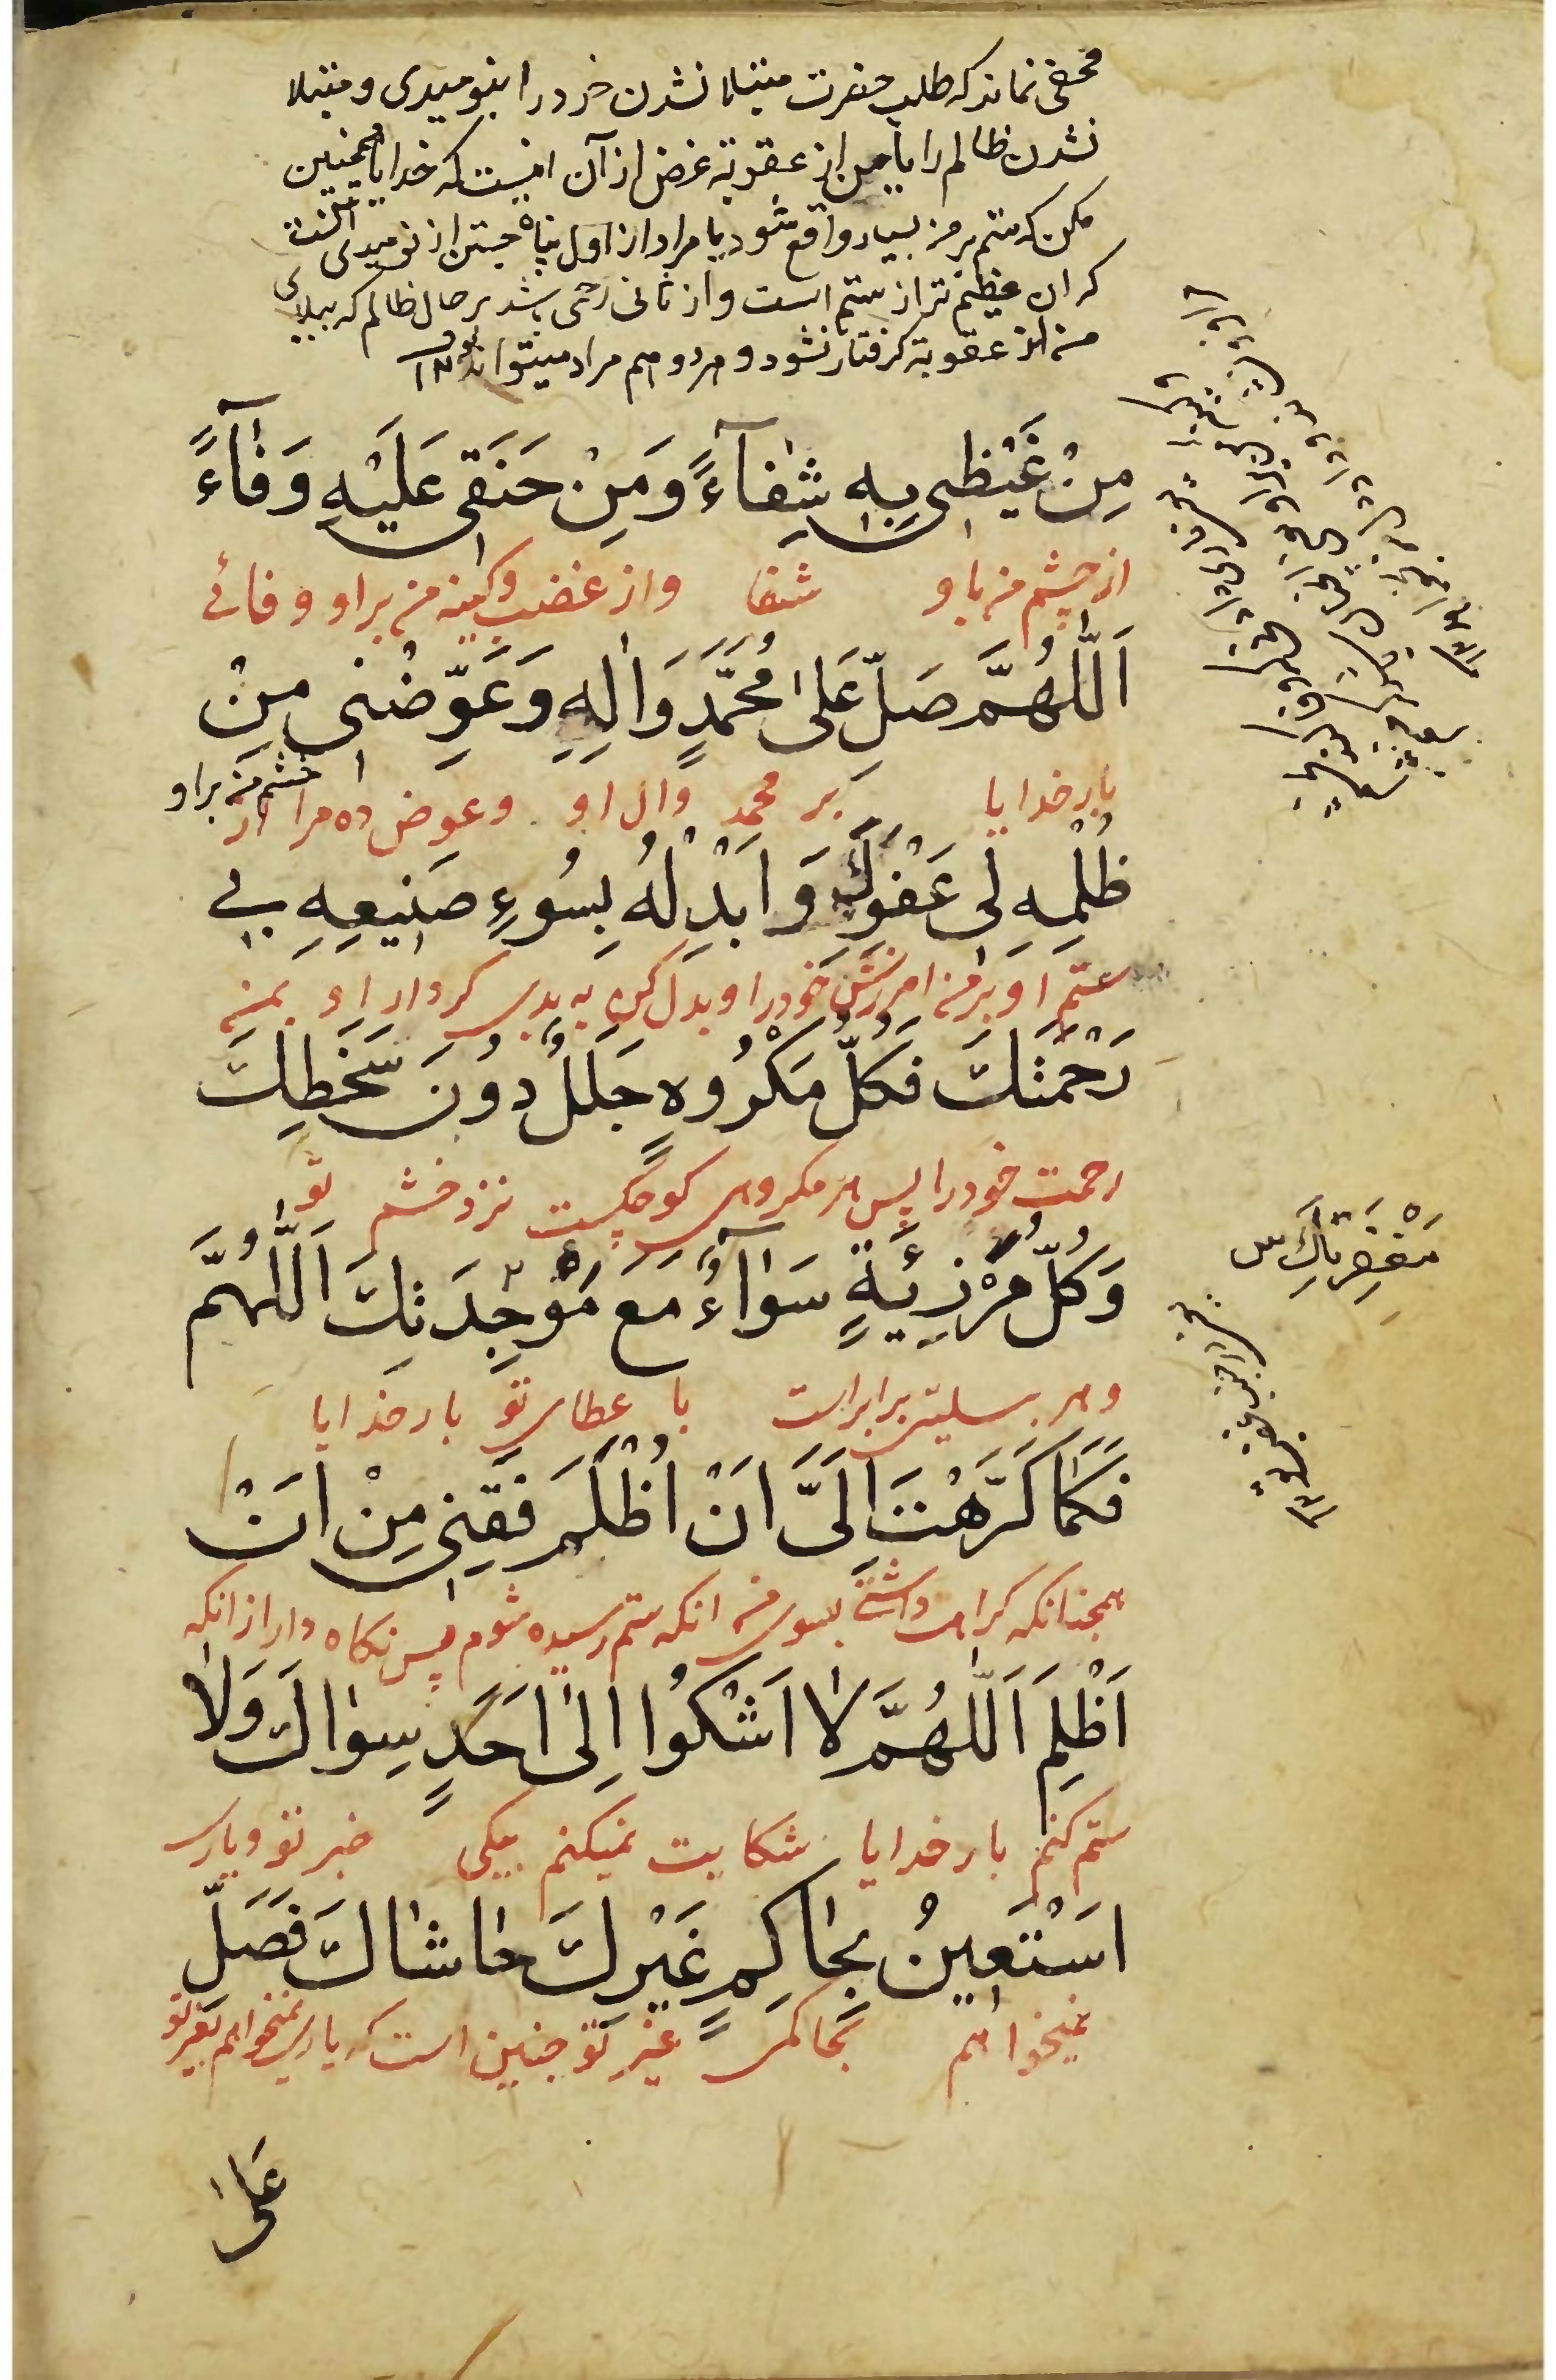 مخفی نماند که طلب حضرت مبتلا نشدن خود را بنومیدی و مبتلا
نشدن ظالم را بایمن از عقوبة غرض از آن اینست که خدایا همچنین
مکن که ستم بر من بسیار واقع شود یا مراد از اول پناه جستن از نومیدی است
که ان عظیم تر از ستم است و از ثانی رحمی باشد بر حال ظالم که ببلای
من از عقوبة گرفتار نشود و هر دو هم مراد میتواند بود ۱۲
مِنْ غَيْظِي بِهِ شِفَآءً وَمِنْ حَنَقِي عَلَيْهِ وَفَآءً
از خشم من باو شفا و از غضب و کینه من بر او وفائے
اَللّٰهُمَّ صَلِّ عَلىٰ مُحَمَّدٍ وَاٰلِهِ وَعَوِّضْنِي مِنْ
بار خدایا بر محمد وال او و عوض ده مرا از
خشم من بر او
ظُلْمِهِ لِي عَفْوَكَ وَاَبْدِلْهُ بِسُوءِ صَنِيعِهِ بِي
ستم او بر من امرزش خود را و بدل کن به بدی کردار او بمن
رَحْمَتَكَ فَكُلُّ مَكْرُوهٍ جَلَلٌ دُونَ سَخَطِكَ
رحمت خود را پس هر مکروهی کوچکیست نزد خشم تو
وَكُلُّ مَرْزِئَةٍ سَوَآءٌ مَعَ مَوْجِدَتِكَ اَللّٰهُمَّ
مَغْفِرَتِكَ س
و هر بسلیتی برابر است با عطای تو بار خدایا
فَكَمَا كَرَّهْتَ اِلَيَّ اَنْ اُظْلَمَ فَقِنِي مِنْ اَنْ
همچنانکه کراهت داشتی بسوی من انکه ستم رسیده شوم پس نکاه دار از انکه
اَظْلِمَ اَللّٰهُمَّ لاٰ اَشْكُوا اِلىٰ اَحَدٍ سِوٰاكَ وَلاٰ
ستم کنم بار خدایا شکایت نمیکنم بیکی غیر تو و یاری
اَسْتَعِينُ بِحٰاكِمٍ غَيْرِكَ حٰاشٰاكَ فَصَلِّ
نمیخواهم بحاکمی غیر تو چنین است که یاری نمیخواهم بغیر تو
عَلىٰ